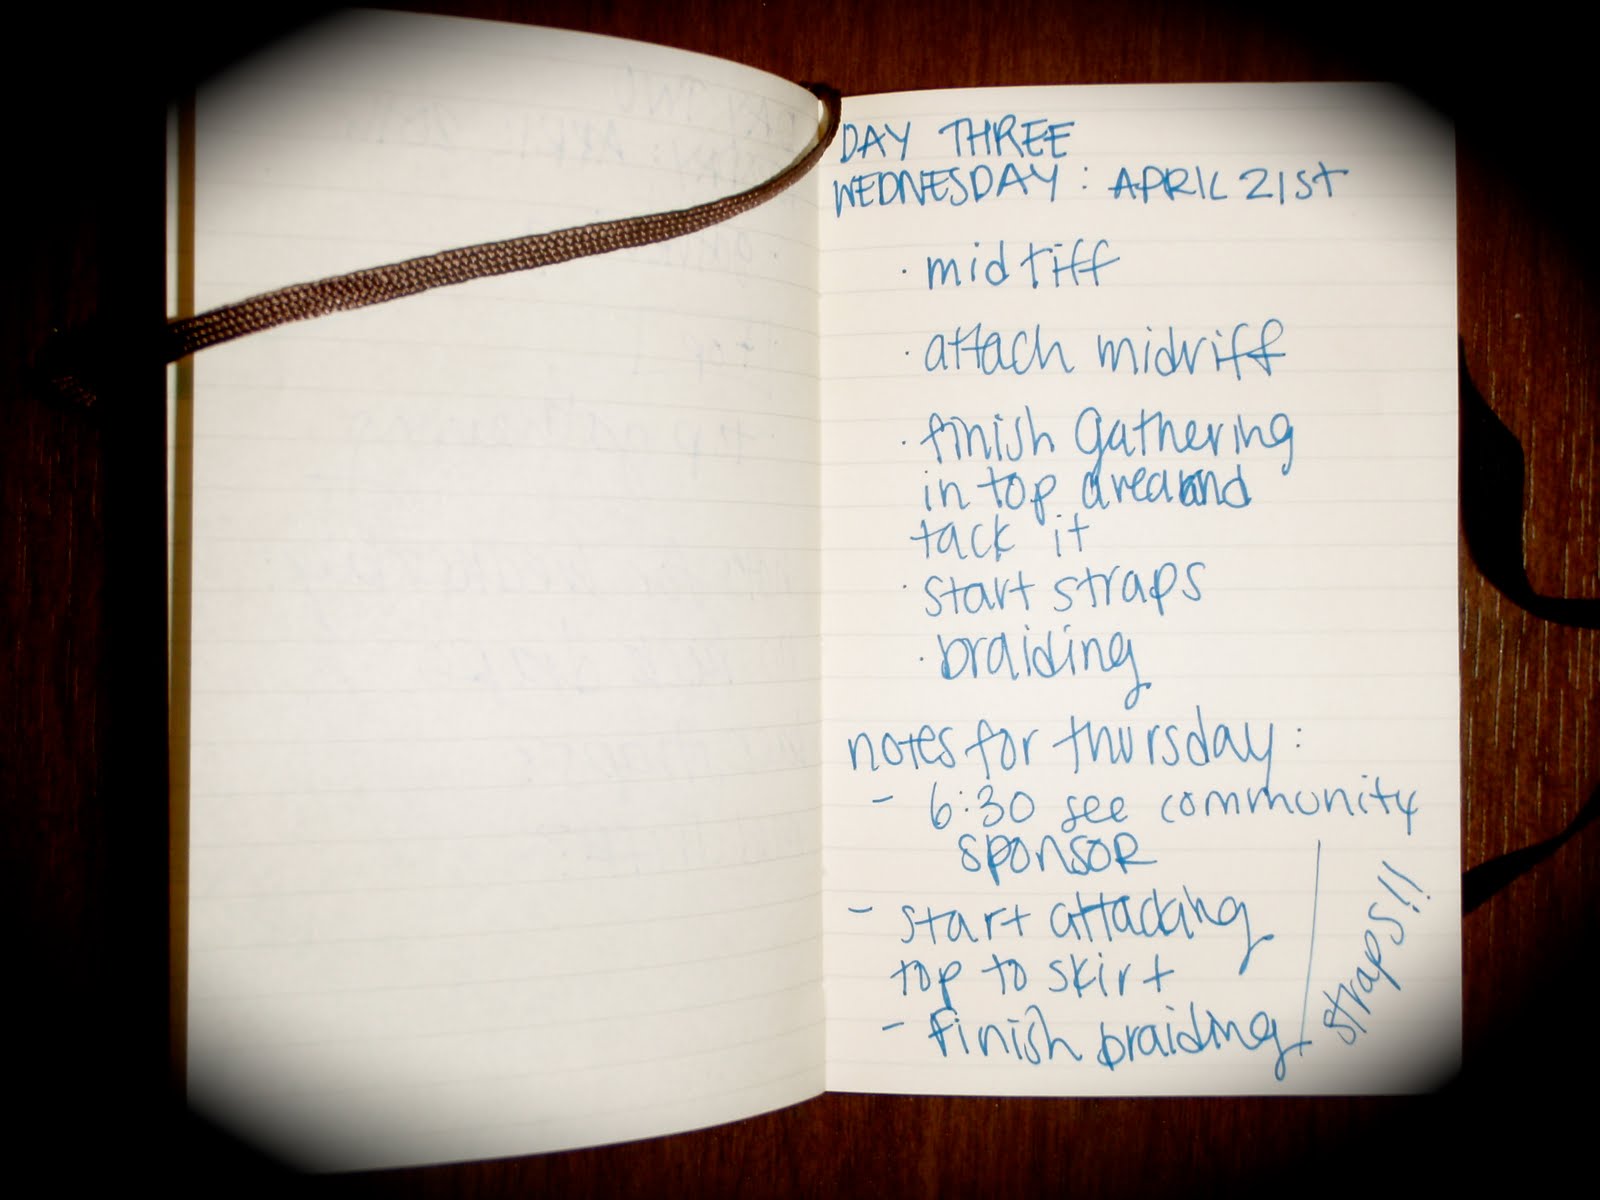 DAY THREE
WEDNESDAY: APRIL 21ST
· midtiff
· attach midriff
· finish gathering
in top area and
tack it
· start straps
· braiding
notes for thursday:
- 6:30 see community
sponsor
- start attaching
top to skirt
- finish braiding
straps!!